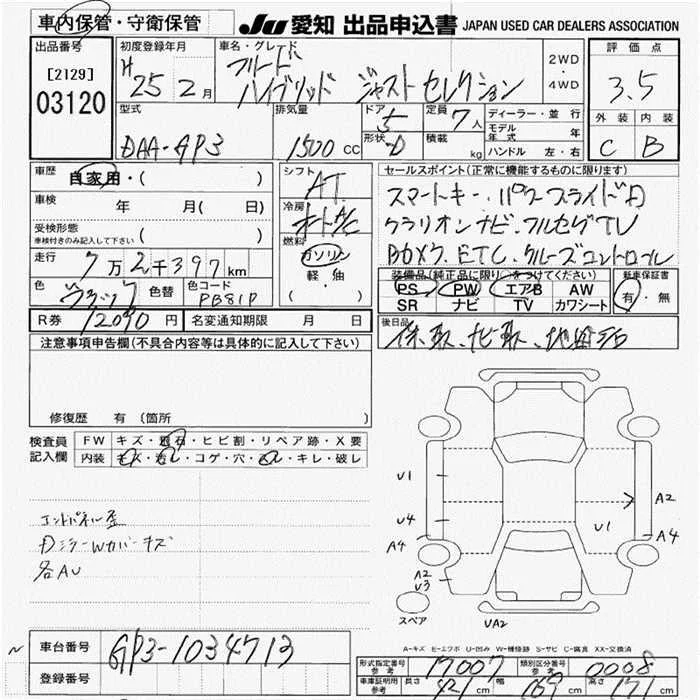 車内保管・守衛保管
JU 愛知 出品申込書 JAPAN USED CAR DEALERS ASSOCIATION
出品番号
[2129]
03120
初度登録年月
H 25 2月
車名・グレード
フリード
ハイブリッド ジャストセレクション
2WD
・
4WD
評価点
3.5
外装 内装
C B
型式
DAA-GP3
排気量
1500 CC
ドア
5
形状
D
定員
7人
積載
kg
ディーラー・並行
モデル年式 年
ハンドル 左・右
車歴
自家用・( )
車検
年 月( 日)
受検形態
車検付きのみ記入して下さい ( )
走行
7万2千397km
色
ブラック
色替
色コード
PB81P
シフト
AT
冷房
オートA/C
燃料
ガソリン
軽・油
( )
セールスポイント(正常に機能するものに限ります)
スマートキー、パワースライドD
クラリオンナビ・フルセグTV
Bカメラ、ETC、クルーズコントロール
装備品(純正品に限り○をつけてください)
PS PW エアB AW
SR ナビ TV カワシート
新車保証書
有・無
R券 12090円 名変通知期限 月 日
後日品
保、取、ナビ取、
注意事項申告欄(不具合内容等は具体的に記入して下さい)
修復歴 有(箇所
検査員
記入欄
FW キズ・飛石・ヒビ割・リペア跡・X要
内装 キズ・汚レ・コゲ・穴・・キレ・破レ
エンドパネル歪
DミラーWカバーキズ
各AU
U1
U4
A4
A2
U3
スペア
UA2
U1
A2
A4
A-キズ E-エクボ U-凹み W-補修跡 S-サビ C-腐食 XX-交換済
車台番号
GP3-1034713
登録番号
形式指定番号
参考
17007
類別区分番号
参考
0008
車庫証明用
参考
長さ 421cm 幅 169cm 高さ 171cm